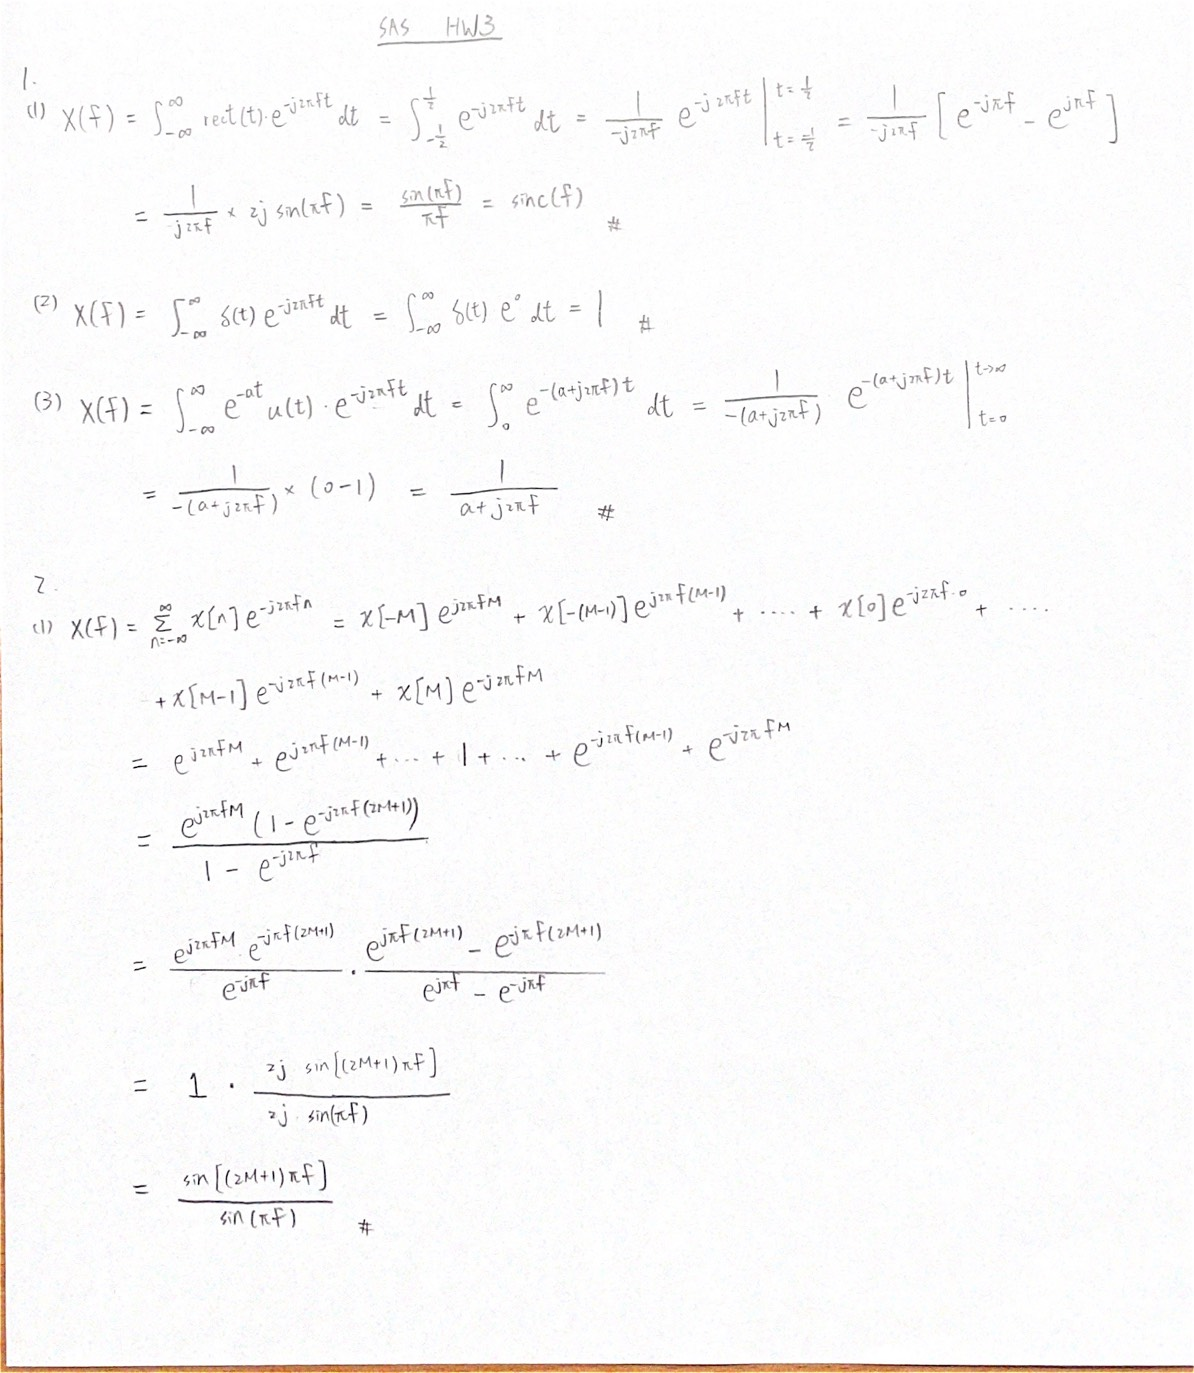 SAS HW3
1.
(1) X(f) = ∫_{-∞}^{∞} rect(t)·e^{-j2πft} dt = ∫_{-1/2}^{1/2} e^{-j2πft} dt = \frac{1}{-j2πf} e^{-j2πft} |_{t=-1/2}^{t=1/2} = \frac{1}{-j2πf} [e^{-jπf} - e^{jπf}]
= \frac{1}{j2πf} × 2j sin(πf) = \frac{sin(πf)}{πf} = sinc(f) #
(2) X(f) = ∫_{-∞}^{∞} δ(t) e^{-j2πft} dt = ∫_{-∞}^{∞} δ(t) e^0 dt = 1 #
(3) X(f) = ∫_{-∞}^{∞} e^{-at} u(t)·e^{-j2πft} dt = ∫_0^{∞} e^{-(a+j2πf)t} dt = \frac{1}{-(a+j2πf)} e^{-(a+j2πf)t} |_{t=0}^{t→∞}
= \frac{1}{-(a+j2πf)} × (0-1) = \frac{1}{a+j2πf} #
2.
(1) X(f) = Σ_{n=-∞}^{∞} x[n] e^{-j2πfn} = x[-M] e^{j2πfM} + x[-(M-1)] e^{j2πf(M-1)} + .... + x[0] e^{-j2πf·0} + ....
+ x[M-1] e^{-j2πf(M-1)} + x[M] e^{-j2πfM}
= e^{j2πfM} + e^{j2πf(M-1)} + ... + 1 + ... + e^{-j2πf(M-1)} + e^{-j2πfM}
= \frac{e^{j2πfM} (1 - e^{-j2πf(2M+1)})}{1 - e^{-j2πf}}
= \frac{e^{j2πfM} · e^{-jπf(2M+1)}}{e^{-jπf}} · \frac{e^{jπf(2M+1)} - e^{-jπf(2M+1)}}{e^{jπf} - e^{-jπf}}
= 1 · \frac{2j sin[(2M+1)πf]}{2j · sin(πf)}
= \frac{sin[(2M+1)πf]}{sin(πf)} #